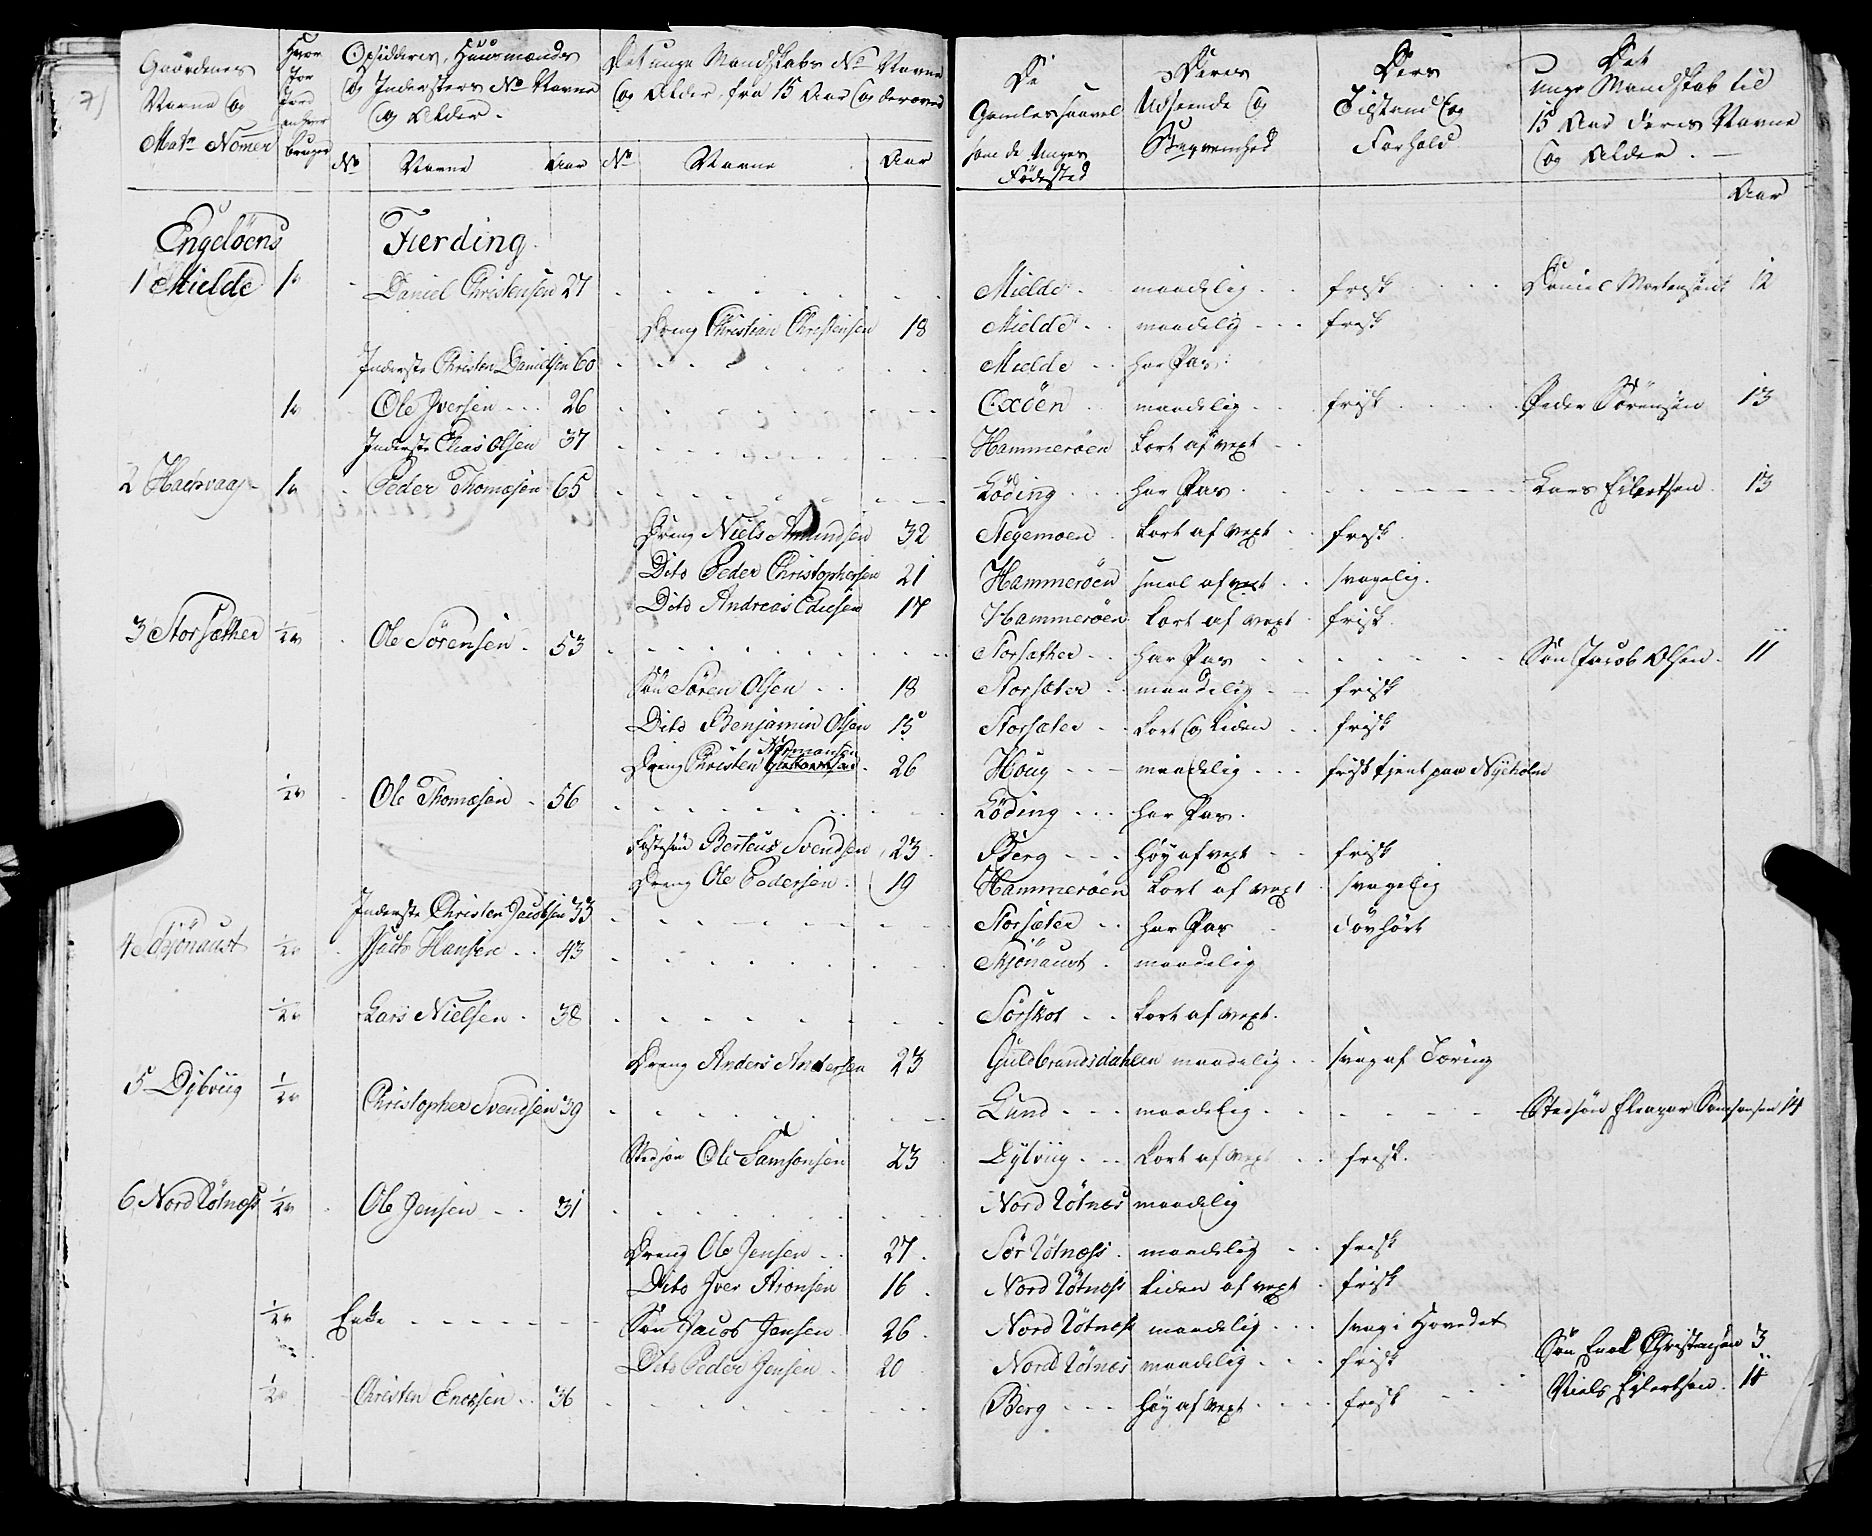 7)
Gaardenes Navne og Matr Nomer
Hvor stor Jord enhver bruger
Opsidderes, Huusmænds og Indersters No Navne og Alder.
No Navne Aar
Det unge Mandskabs No Navne og Alder, fra 15 Aar og derover
No Navne Aar
De Gamles saavel som de Unges Fødested
Deres Udseende og
Ders Tilstand og Forhold
Det unge Mandskab til 15 Aar deres Navne og Alder. Aar
Engelöens Fierding.
1 Mielde 1 Daniel Christensen 27 Mielde maadelig frisk Daniel Mortensen 12
Dreng Christian Christensen 18 Mielde maadelig frisk
Inderste Christen Danielsen 60 Mielde har Pas
Ole Iversen 26 Oxöen maadelig frisk Peder Sörensen 13
Inderste Elias Olsen 37 Hammeröen kort af vext
2 Peder Thomæsen 65 Löding har Pas Lars Eilertsen 13
Dreng Niels Amundsen 32 Stegemoen kort af vext frisk
Dito Peder Christophersen 21 Hammeröen smal af vext svagelig.
Dito Andreas 17 Hammeröen kort af vext frisk
3 Storsæther ½ Ole Sörensen 53 Storsæther har Pas Sön Jacob Olsen 11
Sön Sören Olsen 18 Storsæter maadelig frisk
Dito Benjamin Olsen 15 Storsæter kort og liden frisk
Dreng Christen 26 Houg maadelig frisk tjent paa Nyeholm
½ Ole Thomæsen 56 Löding har Pas.
Berteus Svendsen 23 Berg høy af vext frisk
Dreng Ole Pedersen 19 Hammeröen kort af vext svagelig
Inderste Christen Jacobsen 33 Storsæter har Pas døvhört
4 Skjönaust ½ Hansen 43 Skjönaust maadelig
½ Lars Nielsen 38 Sörskot kort af vext.
Dreng Anders Andersen 23 Guldbrandsdahlen maadelig svag af Tæring
5 Dybviig ½ Christopher Svendsen 39 Lund maadelig Stedsön Eleazar Samsonsen 14
Stedsön Ole Samsonsen 23 Dybviig kort af vext frisk.
6 Nord Lötnæs ½ Ole Jensen 31 Nord Lötnæs maadelig
Dreng Ole Jensen 27 Sör Lötnæss maadelig frisk
Dito Iver Aronsen 16 Nord Lötness liden af vext frisk
½ Enke Sön Jacob Jensen 26 Nord Lötness maadelig svag i Hovedet
Dito Peder Jensen 20 Nord Lötnes maadelig frisk Sön Christensen 3
½ Christen Enoksen 36 Berg høy af vext frisk Niels Eilertsen 11